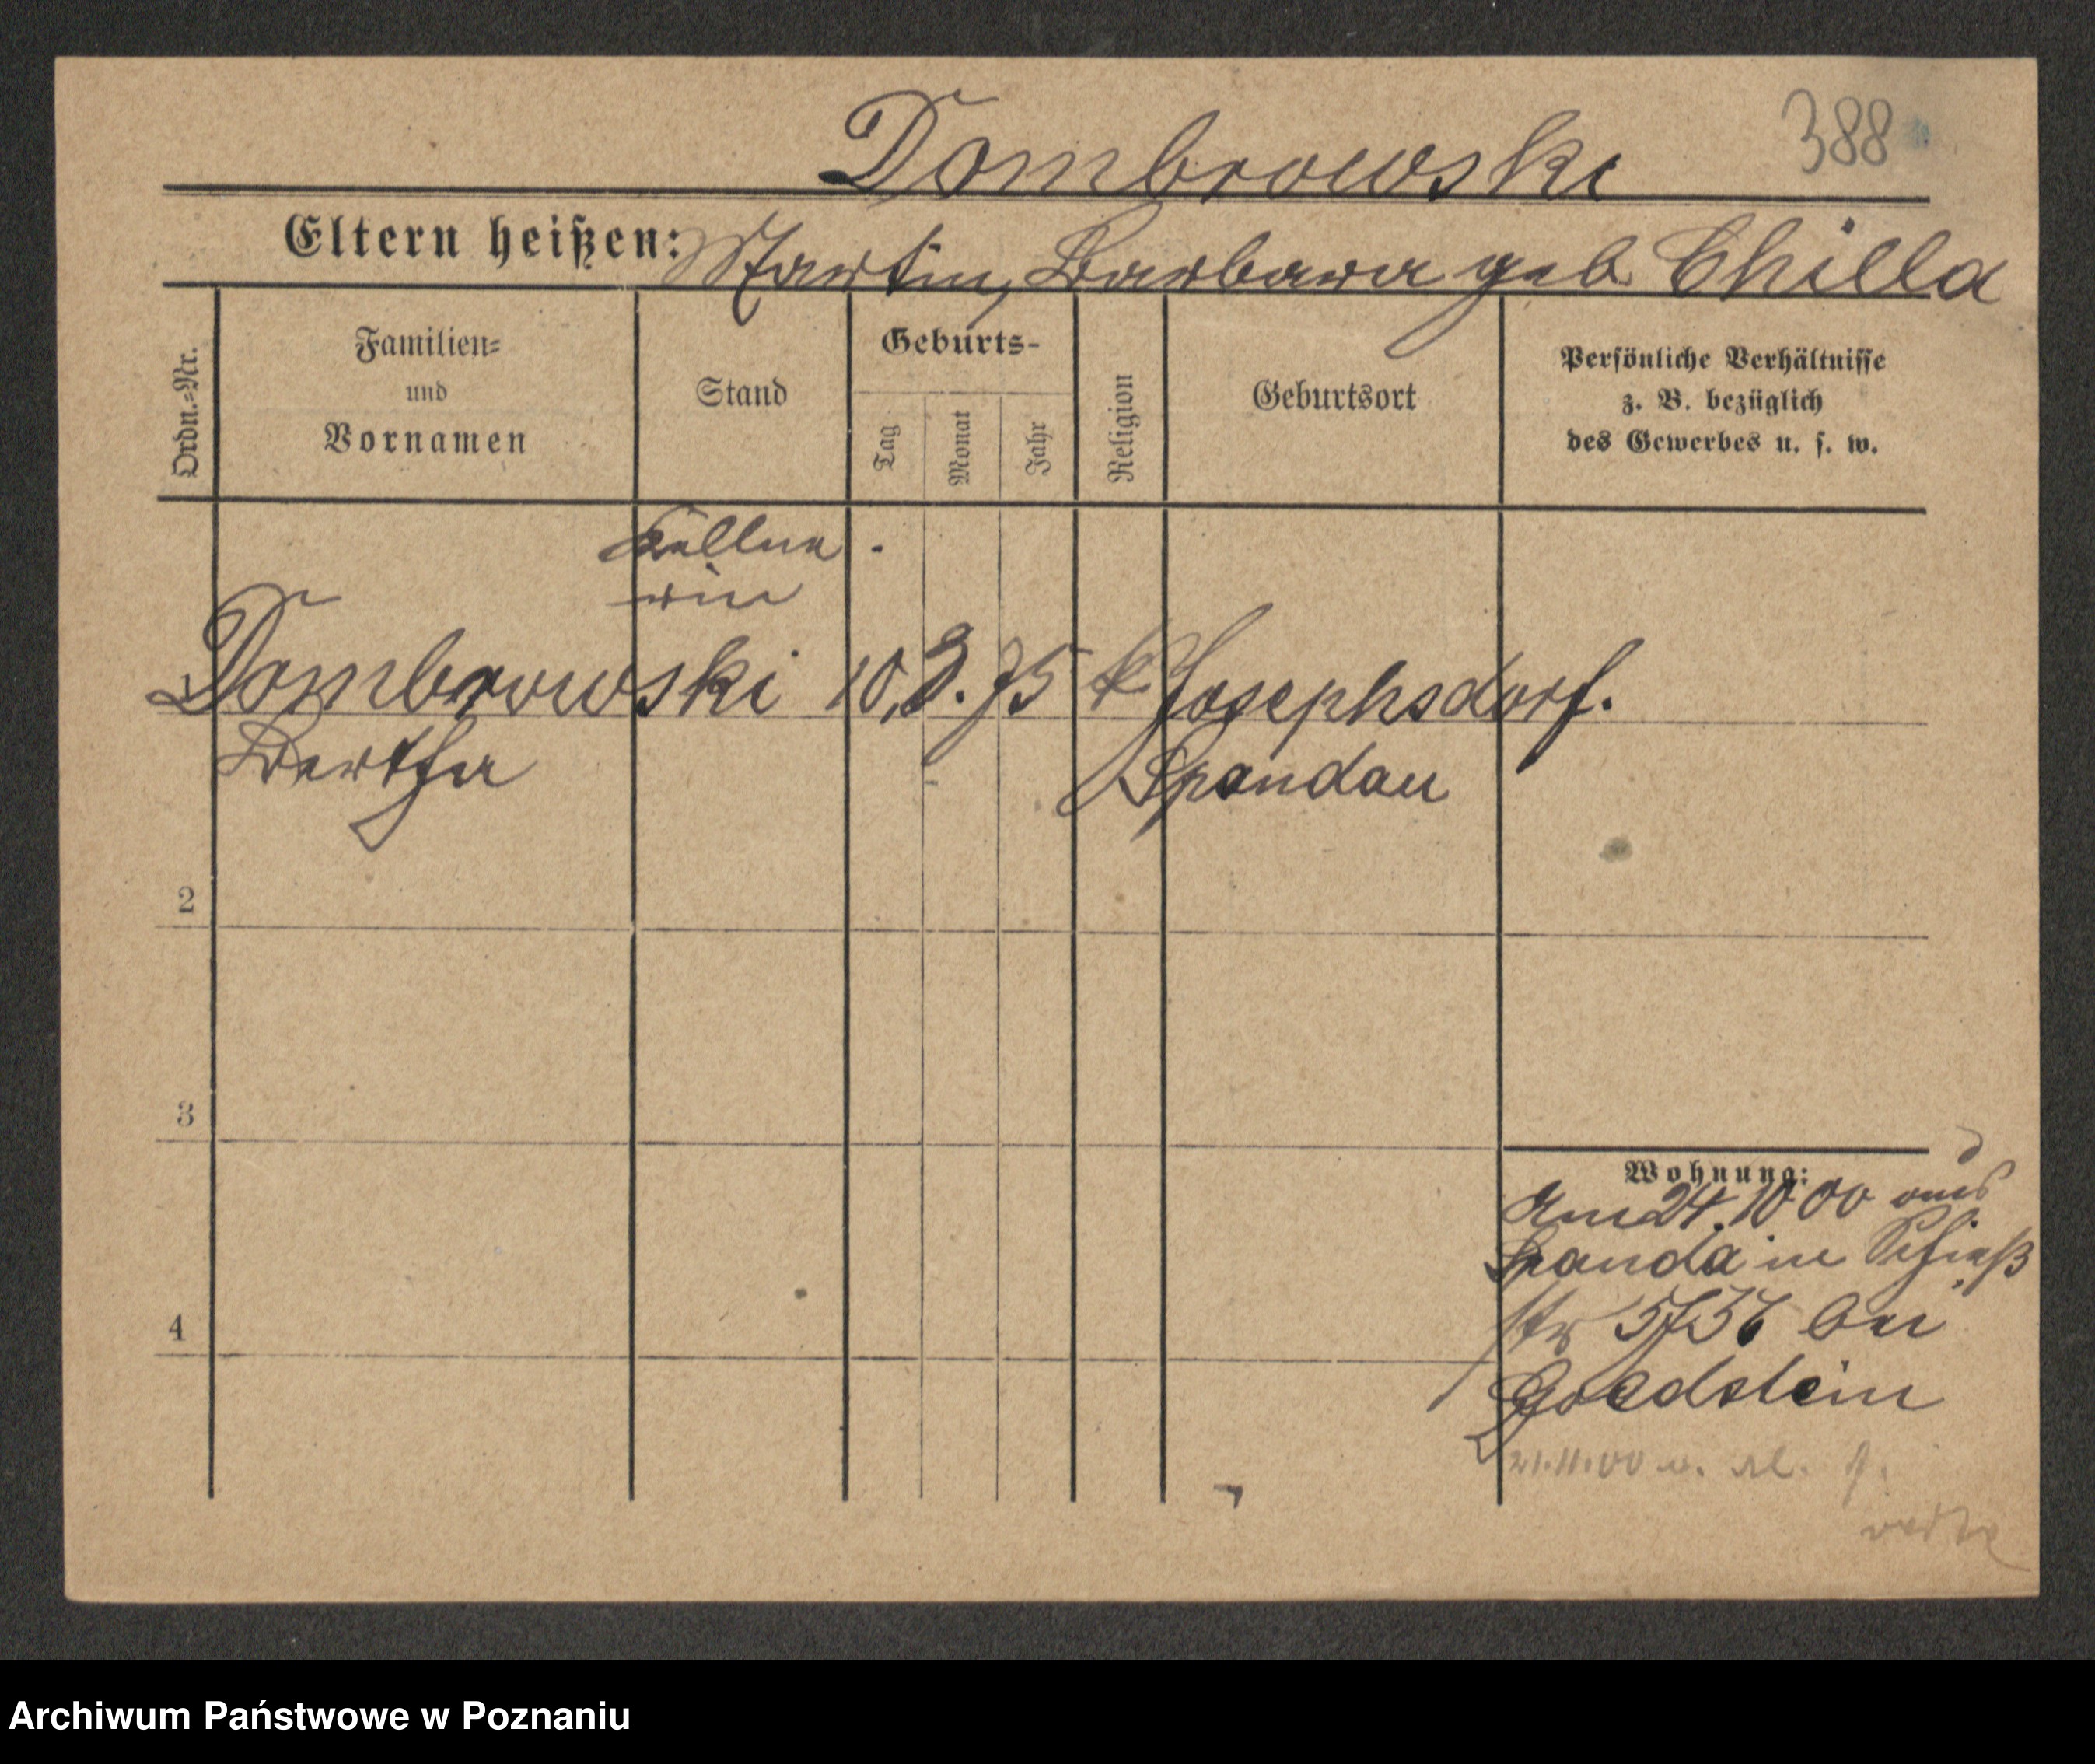 388
Dombrowski
Eltern heißen: Martin, Barbara geb Chilla
Ordn.-Nr.
Familien-
und
Vornamen
Stand
Geburts-
Tag
Monat
Jahr
Religion
Geburtsort
Persönliche Verhältnisse
z. B. bezüglich
des Gewerbes u. s. w.
Kellne
rin
Dombrowski 10. 3. 75 k. Josephsdorf.
Bertha Spandau
2
3
4
Wohnung:
Am 24. 10 00 aus
Spanda in Schieß
str 5/56 bei
Goldstein
21.11.00
Archiwum Państwowe w Poznaniu